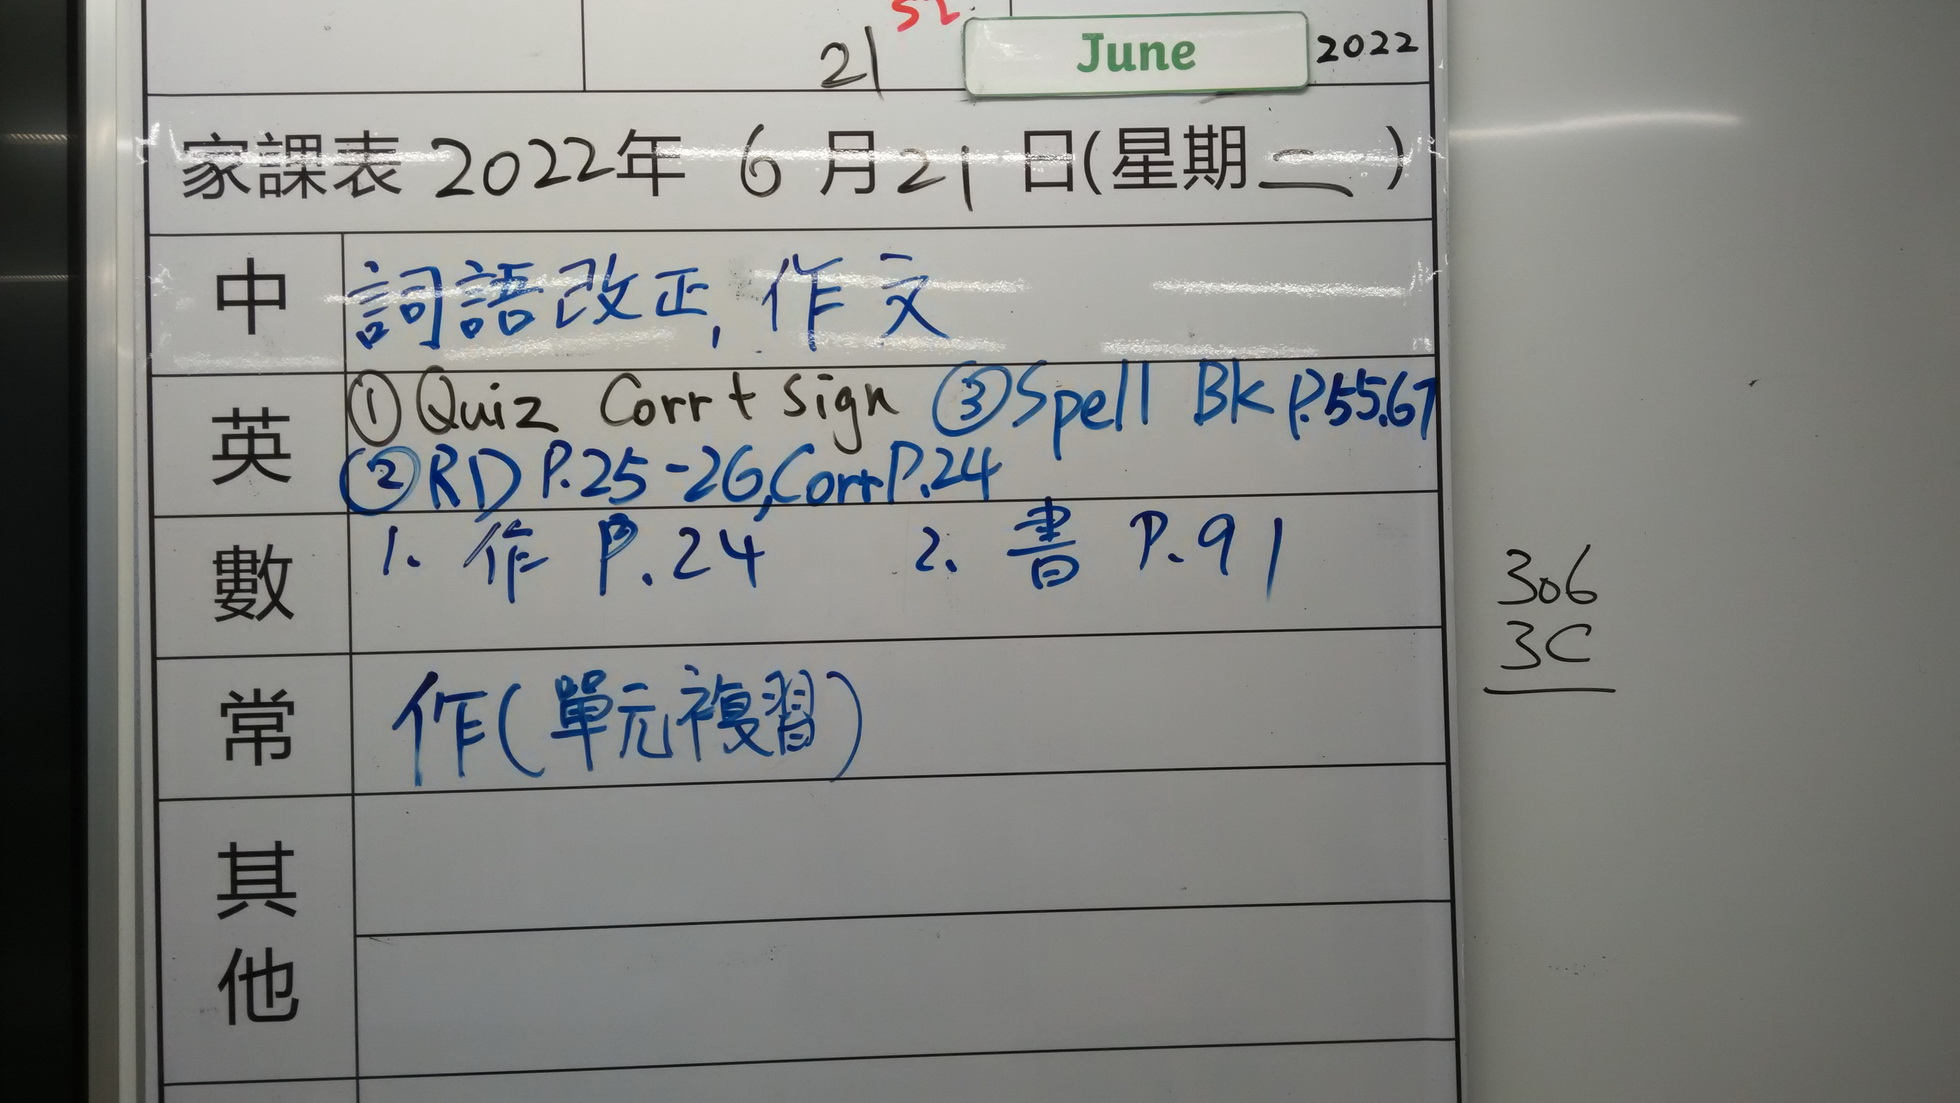 21 June 2022
家課表 2022年 6 月 21 日(星期二)
中 詞語改正, 作文
英 ① Quiz Corr + sign ③ Spell Bk P.55,67
② RD P.25-26, Corr P.24
數 1. 作 P.24 2. 書 P.91
常 作(單元複習)
其他
306
3C